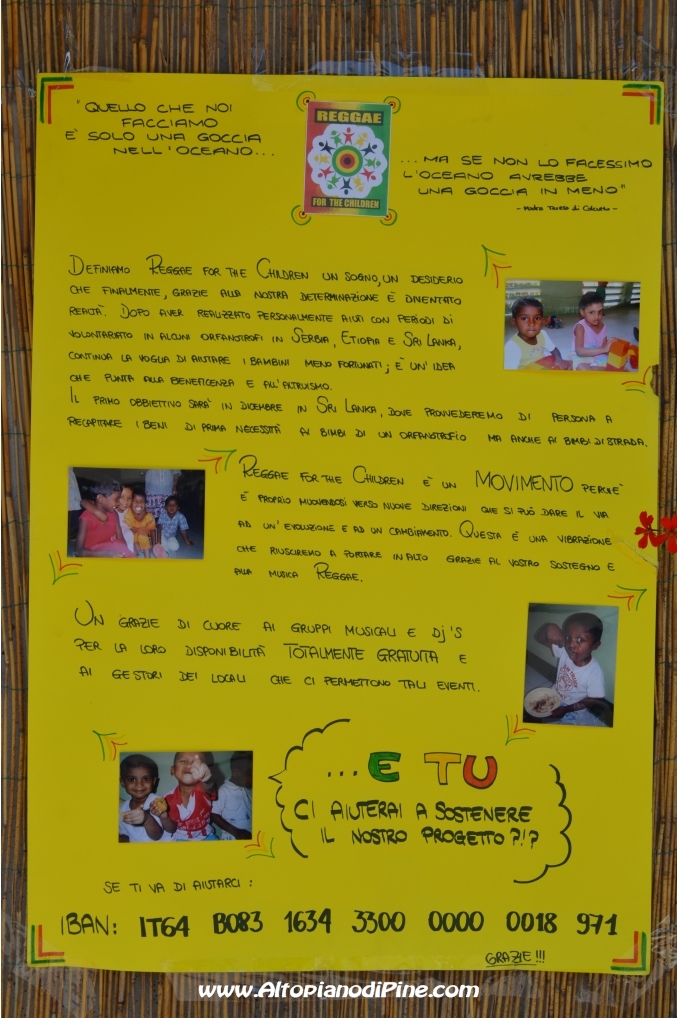 "QUELLO CHE NOI
FACCIAMO
E' SOLO UNA GOCCIA
NELL'OCEANO...
REGGAE
FOR THE CHILDREN
...MA SE NON LO FACESSIMO
L'OCEANO AVREBBE
UNA GOCCIA IN MENO"
- Madre Teresa di Calcutta -
DEFINIAMO REGGAE FOR THE CHILDREN UN SOGNO, UN DESIDERIO
CHE FINALMENTE, GRAZIE ALLA NOSTRA DETERMINAZIONE È DIVENTATO
REALTÀ. DOPO AVER REALIZZATO PERSONALMENTE AIUTI CON PERIODI DI
VOLONTARIATO IN ALCUNI ORFANOTROFI IN SERBIA, ETIOPIA E SRI LANKA,
CONTINUA LA VOGLIA DI AIUTARE I BAMBINI MENO FORTUNATI; È UN'IDEA
CHE PUNTA ALLA BENEFICENZA E ALL'ALTRUISMO.
IL PRIMO OBBIETTIVO SARÀ IN DICEMBRE IN SRI LANKA, DOVE PROVVEDEREMO DI PERSONA A
RECAPITARE I BENI DI PRIMA NECESSITÀ AI BIMBI DI UN ORFANOTROFIO MA ANCHE AI BIMBI DI STRADA.
REGGAE FOR THE CHILDREN È UN MOVIMENTO PERCHÈ
È PROPRIO MUOVENDOSI VERSO NUOVE DIREZIONI CHE SI PUÓ DARE IL VIA
AD UN'EVOLUZIONE E AD UN CAMBIAMENTO. QUESTA È UNA VIBRAZIONE
CHE RIUSCIREMO A PORTARE IN ALTO GRAZIE AL VOSTRO SOSTEGNO E
ALLA MUSICA REGGAE.
UN GRAZIE DI CUORE AI GRUPPI MUSICALI E DJ'S
PER LA LORO DISPONIBILITÀ TOTALMENTE GRATUITA E
AI GESTORI DEI LOCALI CHE CI PERMETTONO TALI EVENTI.
...E TU
CI AIUTERAI A SOSTENERE
IL NOSTRO PROGETTO?!?
SE TI VA DI AIUTARCI:
IBAN: IT64 B083 1634 3300 0000 0018 971
GRAZIE!!!
www.AltopianodiPine.com